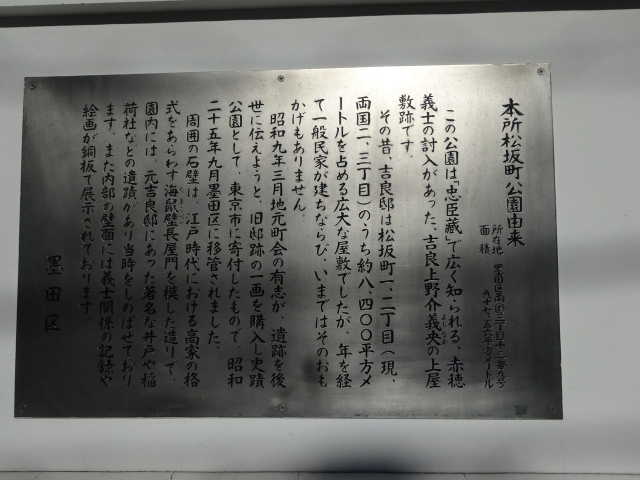 本所松坂町公園由来
所在地　墨田区両国三丁目十三番九号
面積　九十七、五六平方メートル
この公園は「忠臣蔵」で広く知られる、赤穂
義士の討入があった、吉良上野介義央の上屋
敷跡です。
その昔、吉良邸は松坂町一、二丁目（現、
両国二、三丁目）のうち約八、四〇〇平方メ
ートルを占める広大な屋敷でしたが、年を経
て一般民家が建ちならび、いまではそのおも
かげもありません。
昭和九年三月地元町会の有志が、遺跡を後
世に伝えようと、旧邸跡の一画を購入し史蹟
公園として、東京市に寄付したもので、昭和
二十五年九月墨田区に移管されました。
周囲の石壁は、江戸時代における高家の格
式をあらわす海鼠壁長屋門を模した造りで、
園内には、元吉良邸にあった著名な井戸や稲
荷社などの遺蹟があり当時をしのばせており
ます。また内部の壁面には義士関係の記録や
絵画が銅板で展示されております。
墨田区